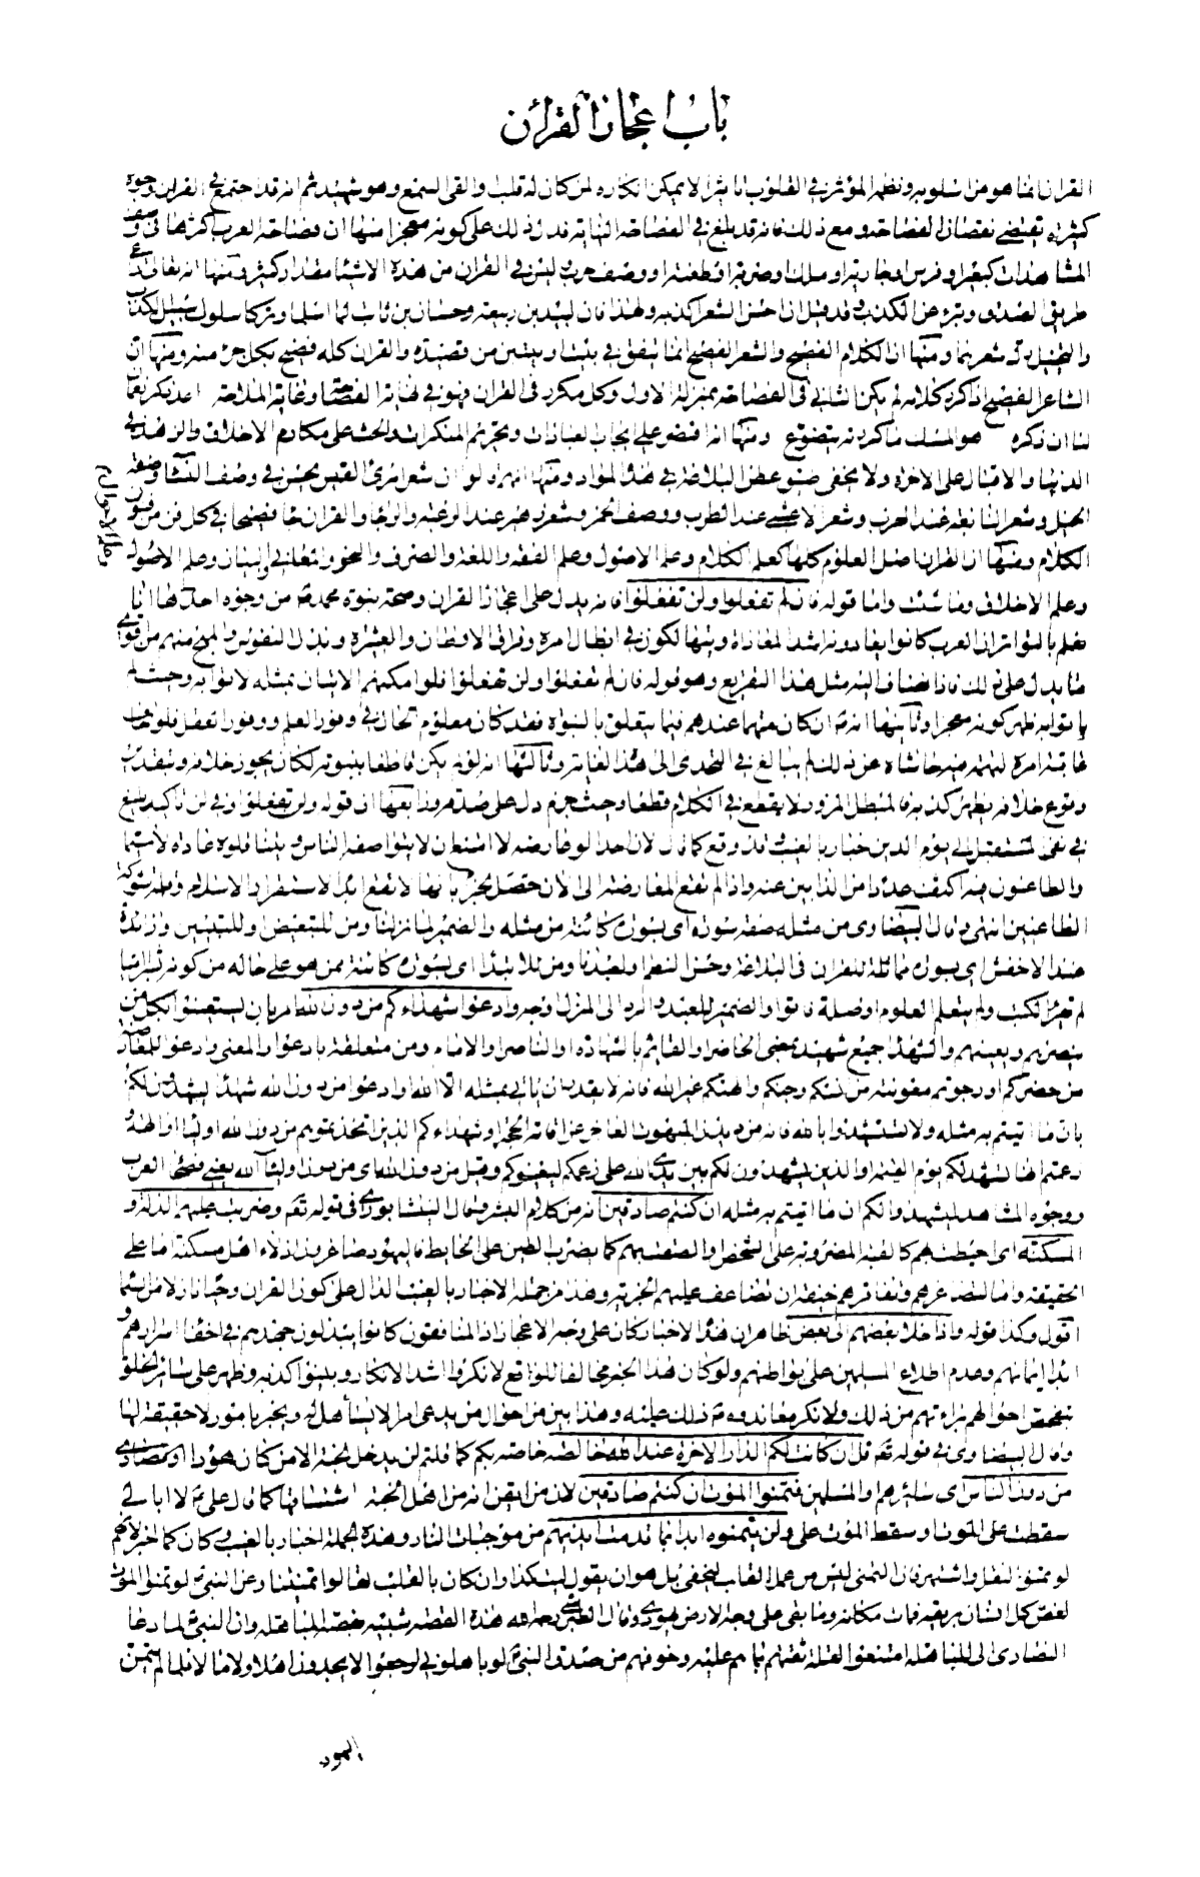 باب اعجاز القرآن
القران انما هو من اسلوبه ونظمه المؤثر في القلوب تاثيرا لا يمكن انكاره لمن كان له قلب والقى السمع وهو شهيد ثم انه قد اجتمع في القران وجوه
كثيرة تقتضي نقصان فصاحته ومع ذلك فانه قد بلغ في الفصاحة النهاية فدل ذلك على كونه معجزا منها ان فصاحة العرب اكثرها في وصف
المشاهدات كبعير او فرس او جارية او ملك او ضربة او طعنة او وصف حرب وليس في القران من هذه الاشياء مقدار كثير ومنها انه تعالى راعى
طريق الصدق وتبرء عن الكذب وقد قيل ان احسن الشعر اكذبه ولهذا فان لبيد بن ربيعة وحسان بن ثابت لما اسلما وتركا سلوك سبيل الكذب
والتخييل رك شعرهما ومنها ان الكلام الفصيح والشعر الفصيح انما يتفق في بيت او بيتين من قصيدة والقران كله فصيح بكل جزء منه ومنها ان
الشاعر الفصيح اذا كرر كلامه لم يكن الثاني في الفصاحة بمنزلة الاول وكل مكرر في القران فهو في نهاية الفصاحة وغاية الملاحة اعد ذكر نعمان
لنا ان ذكره هو المسك ما كررته يتضوع ومنها انه اقتصر على ايجاب العبادات وتحريم المنكرات والحث على مكارم الاخلاق والزهد في
الدنيا والاقبال على الاخرة ولا يخفى ضيق عطن البلاغة في هذه المواد ومنها انهم قالوا ان شعر امرئ القيس يحسن في وصف النساء وصفة
الخيل وشعر النابغة عند الحرب وشعر الاعشى عند الطرب ووصف الخمر وشعر زهير عند الرغبة والرجا والقران جاء فصيحا في كل فن من فنون
الكلام ومنها ان القران اصل العلوم كلها كعلم الكلام وعلم الاصول وعلم الفقه واللغة والصرف والنحو والمعاني والبيان وعلم الاحوال
وعلم الاخلاق وما شئت واما قوله فان لم تفعلوا ولن تفعلوا فانه يدل على اعجاز القران وصحة نبوة محمد من وجوه احدها انا
نعلم بالتواتر ان العرب كانوا يعادونه اشد المعاداة ويتهالكون في ابطال امره وفراق الاوطان والعشيرة وبذل النفوس والمهج منهم من اقوى
ما يدل على ذلك فاذا انضاف اليه مثل هذا التقريع وهو قوله فان لم تفعلوا ولن تفعلوا فلو امكنهم الاتيان بمثله لاتوا به وحيث لم
ياتوا به ظهر كونه معجزا وثانيها انه ان كان متهما عندهم فيما يتعلق بالنبوة فقد كان معلوم الحال في وفور العقل فلو خاف
عاقبة امره لتهمة فيه حاشاه عن ذلك لم يبالغ في التحدي الى هذه الغاية وثالثها انه لو لم يكن قاطعا بنبوته لكان يجوز خلافه وبتقدير
وقوع خلافه يظهر كذبه فالمبطل المزور لا يقطع في الكلام قطعا وحيث جزم دل على صدقه ورابعها ان قوله ولن تفعلوا وفي لن تاكيد بليغ
في نفي المستقبل الى يوم الدين اخبار بالغيب وقد وقع كما قال لان احدا لو عارضه لامتنع ان لا يتواصفه الناس ويتناقلوه عادة لا سيما
والطاعنون فيه اكثف عددا من الذابين عنه واذا لم تقع المعارضة الى الان حصل الجزم بانها لا تقع ابدا لاستقرار الاسلام وقلة شوكة
الطاعنين انتهى وقال البيضاوى من مثله صفة سورة اى بسورة كائنة من مثله والضمير لما نزلنا ومن للتبعيض او للتبيين وزائدة
عند الاخفش اى بسورة مماثلة للقران في البلاغة وحسن النظم او لعبدنا ومن للابتداء اى بسورة كائنة ممن هو على حاله من كونه بشرا اميا
لم يقرأ الكتب ولم يتعلم العلوم او صلة فاتوا والضمير للعبد والرد الى المنزل اوجه وادعوا شهداءكم من دون الله امر بان يستعينوا بكل من
ينصرهم ويعينهم والشهداء جمع شهيد بمعنى الحاضر او القائم بالشهادة او الناصر او الامام ومن متعلقة بادعوا والمعنى وادعوا للمعارضة
من حضركم او رجوتم معونته من انسكم وجنكم والهتكم غير الله فانه لا يقدر ان ياتي بمثله الا الله او ادعوا من دون الله شهداء يشهدون لكم
بان ما اتيتم به مثله ولا تستشهدوا بالله فانه من ديدن المبهوت العاجز عن اقامة الحجة او شهداءكم الذين اتخذتموهم من دون الله اولياء او الهة
زعمتم انها تشهد لكم يوم القيمة او الذين يشهدون لكم بين يدى الله على زعمكم ليعينوكم وقيل من دون الله اى من دون اولياء الله يعنى فصحاء العرب
ووجوه المشاهد ليشهدوا لكم ان ما اتيتم به مثله ان كنتم صادقين انه من كلام البشر وقال النيشابورى في قوله تع وضربت عليهم الذلة و
المسكنة اى احيطت بهم كالقبة المضروبة على الشخص او الصقت بهم كما يضرب الطين على الحايط فاليهود صاغرون اذلاء اهل مسكنة اما على
الحقيقة واما لتصاغرهم وتفاقرهم خيفة ان تضاعف عليهم الجزية وهذا من جملة الاخبار بالغيب الدال على كون القران وحيا نازلا من السماء
اقول وكذا قوله واذا خلا بعضهم الى بعض ظاهر ان هذا الاخبار كان على وجه الاعجاز اذ المنافقون كانوا يبذلون جهدهم في اخفاء اسرارهم و
ابداء ايمانهم وعدم اطلاع المسلمين على بواطنهم ولو كان هذا الخبر مخالفا للواقع لانكروا اشد الانكار وبينوا كذبه وظهر على سائر الخلق
بتفحص احوالهم براءتهم من ذلك ولانكر معاندوه ذلك عليه وهذا بين من احوال من يدعى امرا ليس اهلا له ويخبر بامور لا حقيقة لها
وقال البيضاوى في قوله تع قل ان كانت لكم الدار الاخرة عند الله خالصة خاصة بكم كما قلتم لن يدخل الجنة الا من كان هودا او نصارى
من دون الناس اى سائرهم او المسلمين فتمنوا الموت ان كنتم صادقين لان من ايقن انه من اهل الجنة اشتاقها كما قال على لا ابالي
سقطت على الموت او سقط الموت على ولن يتمنوه ابدا بما قدمت ايديهم من موجبات النار وهذه الجملة اخبار بالغيب وكان كما اخبر لانهم
لو تمنوا لنقل واشتهر فان التمنى ليس من عمل القلب ليخفى بل هو ان يقول ليت كذا وان كان بالقلب لقالوا تمنينا وعن النبي لو تمنوا الموت
لغص كل انسان بريقه فمات مكانه وما بقى على وجه الارض يهودى وقال الطبرسى رحمه الله هذه القصة شبيهة بقصة المباهلة وان النبي لما دعا
النصارى الى المباهلة امتنعوا لقلة ثقتهم بما هم عليه وخوفهم من صدق النبي لو باهلوني لرجعوا لا يجدون اهلا ولا مالا فلما لم يتمن
اليهود